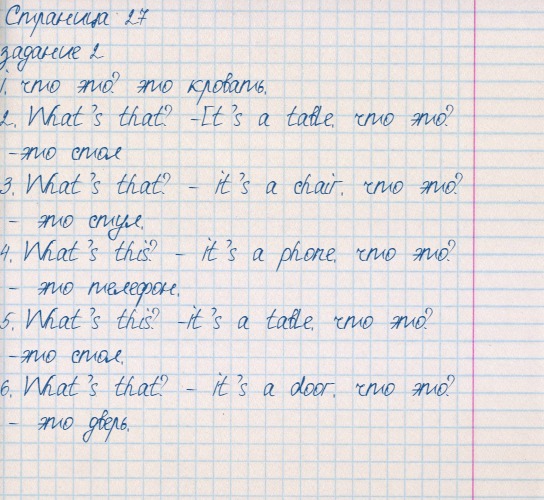 Страница 27
задание 2
1. что это? это кровать.
2. What's that? -It's a table. что это?
-это стол
3. What's that? - it's a chair. что это?
- это стул.
4. What's this? - it's a phone. что это?
- это телефон.
5. What's this? -it's a table. что это?
-это стол.
6. What's that? - it's a door. что это?
- это дверь.